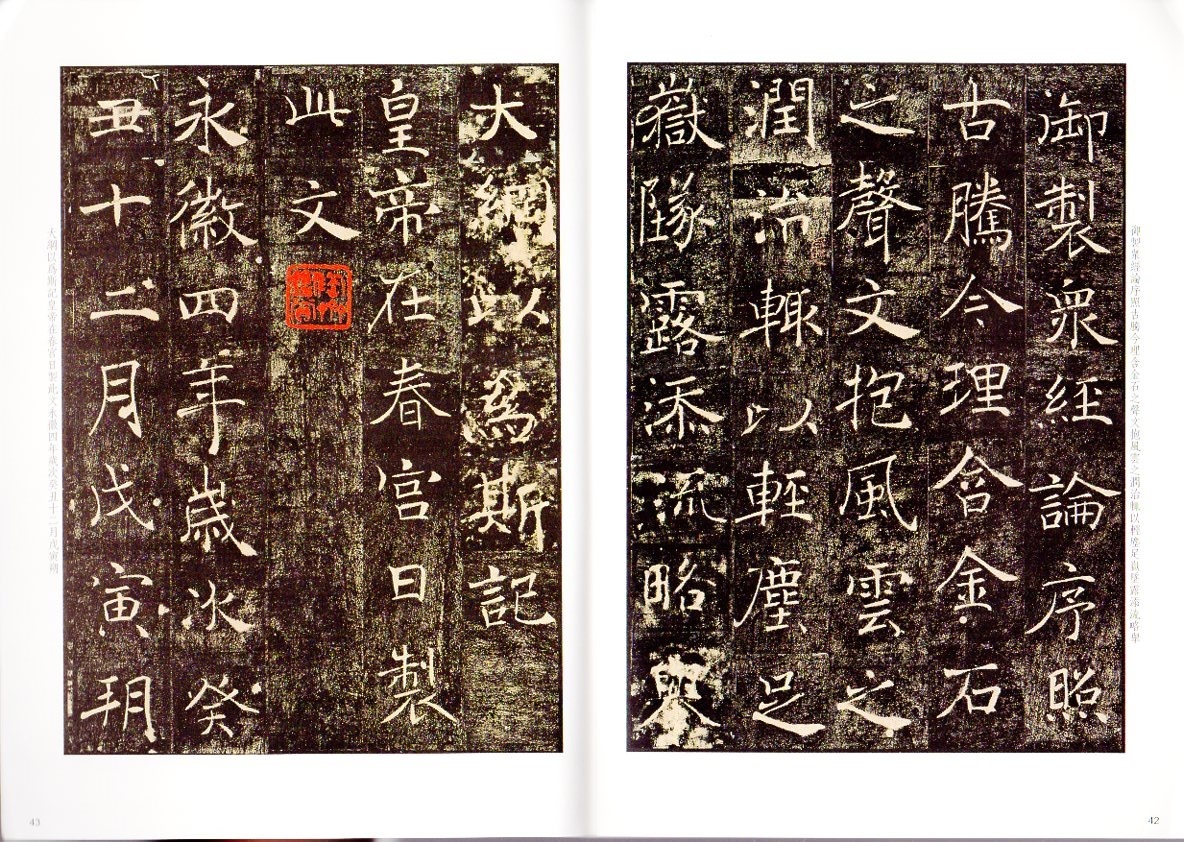 御製衆經論序照古騰今理含金石之聲文抱風雲之潤治輒以輕塵足岳墜露添流略舉
御製衆經論序照
古騰今理含金石
之聲文抱風雲之
潤治輒以輕塵足
嶽隊露添流略舉
42
大綱以爲斯記
皇帝在春宮日製
此文
永徽四年歲次癸
丑十二月戊寅朔
大綱以爲斯記皇帝在春宮日製此文永徽四年歲次癸丑十二月戊寅朔
43